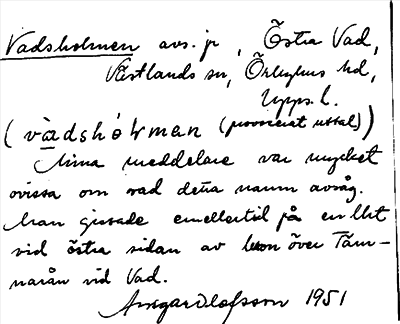 Vadsholmen avs. jr, Östra Vad,
Västlands sn, Örbyhus hd,
Upps. l.
(vàdshòlmen (provocerat uttal))
Mina meddelare var mycket
ovissa om vad detta namn avsåg.
Man gissade emellertid på en llt
vid östra sidan av bron över Täm-
narån vid Vad.
Olofsson 1951